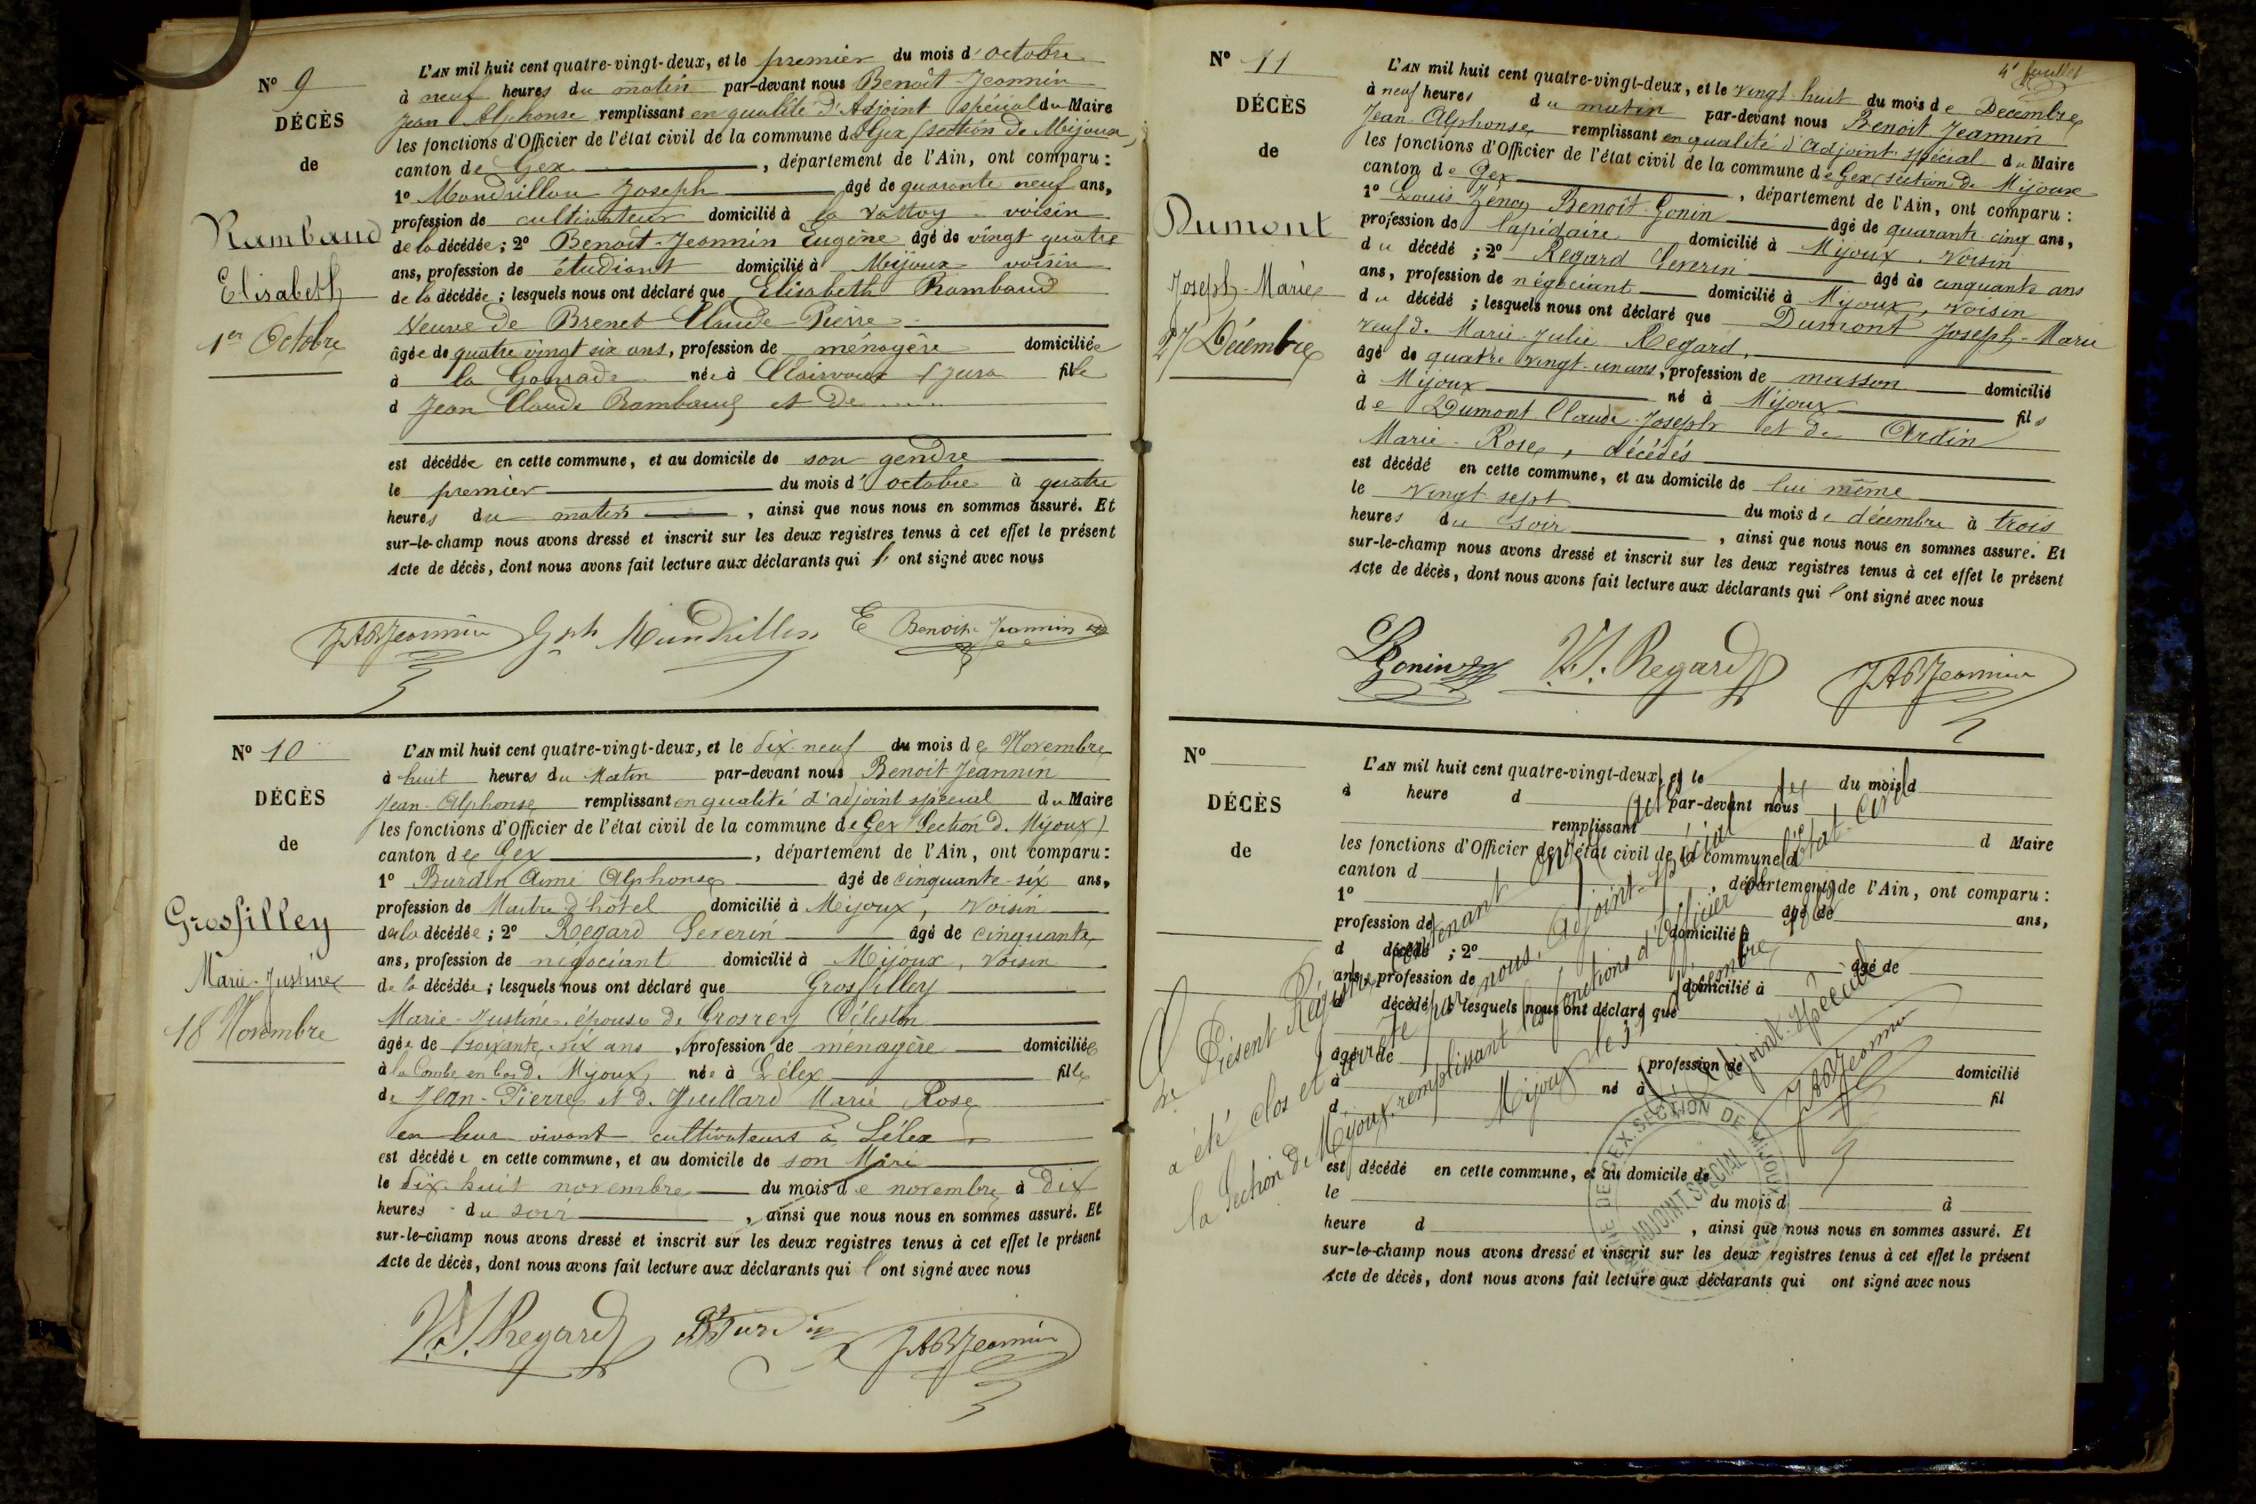 N° 9
DÉCÈS
de
Rambaud
Elisabeth
1er Octobre
L'AN mil huit cent quatre-vingt-deux, et le premier du mois d'octobre
à neuf heures du matin par-devant nous Benoît-Jeannin
Jean Alphonse remplissant en qualité d'Adjoint spécial du Maire
les fonctions d'Officier de l'état civil de la commune de Gex (section de Mijoux)
canton de Gex, département de l'Ain, ont comparu :
1° Mondrillon Joseph âgé de quarante neuf ans,
profession de cultivateur domicilié à la voisin
de la décédée ; 2° Benoît-Jeannin Eugène âgé de vingt quatre
ans, profession de étudiant domicilié à Mijoux voisin
de la décédée ; lesquels nous ont déclaré que Elisabeth Rambaud
Veuve de Brenet Claude-Pierre
âgée de quatre vingt six ans, profession de ménagère domiciliée
à la née à Clairvaux (Jura fille
d Jean Claude Rambaud et de ....
est décédée en cette commune, et au domicile de son gendre
le premier du mois d'octobre à quatre
heures du matin, ainsi que nous nous en sommes assuré. Et
sur-le-champ nous avons dressé et inscrit sur les deux registres tenus à cet effet le présent
Acte de décès, dont nous avons fait lecture aux déclarants qui l'ont signé avec nous
JABJeannin Jph Mundrillon E Benoit-Jeannin
N° 10
DÉCÈS
de
Grosfilley
Marie-Justine
18 Novembre
L'AN mil huit cent quatre-vingt-deux, et le dix-neuf du mois de Novembre
à huit heures du Matin par-devant nous Benoit Jeannin
Jean-Alphonse remplissant en qualité d'adjoint spécial du Maire
les fonctions d'Officier de l'état civil de la commune de Gex (Section de Mijoux)
canton de Gex, département de l'Ain, ont comparu :
1° Burdin Aimé Alphonse âgé de cinquante-six ans,
profession de Maitre d'hôtel domicilié à Mijoux, Voisin
de la décédée ; 2° Regard Severin âgé de cinquante
ans, profession de négociant domicilié à Mijoux, Voisin
de la décédée ; lesquels nous ont déclaré que Grosfilley
Marie-Justine, épouse de Grosrey Célestin
âgée de soixante-six ans, profession de ménagère domiciliée
à la Combe en bas de Mijoux, née à Lélex fille
de Jean-Pierre et de Juillard Marie Rose
en leur vivant cultivateurs à Lélex
est décédée en cette commune, et au domicile de son Mari
le dix-huit novembre du mois de novembre à dix
heures du soir, ainsi que nous nous en sommes assuré. Et
sur-le-champ nous avons dressé et inscrit sur les deux registres tenus à cet effet le présent
Acte de décès, dont nous avons fait lecture aux déclarants qui l'ont signé avec nous
V.S. Regard Burdin JABJeannin
4e feuillet
N° 11
DÉCÈS
de
Dumont
Joseph-Marie
27 Décembre
L'AN mil huit cent quatre-vingt-deux, et le vingt-huit du mois de Decembre
à neuf heures du matin par-devant nous Benoit Jeannin
Jean-Alphonse remplissant en qualité d'adjoint spécial du Maire
les fonctions d'Officier de l'état civil de la commune de Gex (section de Mijoux
canton de Gex, département de l'Ain, ont comparu :
1° Louis Zénon Benoit-Gonin âgé de quarante-cinq ans,
profession de lapidaire domicilié à Mijoux, Voisin
du décédé ; 2° Regard Severin âgé de cinquante ans
ans, profession de négociant domicilié à Mijoux, Voisin
du décédé ; lesquels nous ont déclaré que Dumont Joseph-Marie
veuf de Marie-Julie Regard,
âgé de quatre vingt-un ans, profession de masson domicilié
à Mijoux né à Mijoux fils
de Dumont Claude-Joseph et de Ardin
Marie-Rose, décédés
est décédé en cette commune, et au domicile de lui même
le vingt sept du mois de décembre à trois
heures du soir, ainsi que nous nous en sommes assuré. Et
sur-le-champ nous avons dressé et inscrit sur les deux registres tenus à cet effet le présent
Acte de décès, dont nous avons fait lecture aux déclarants qui l'ont signé avec nous
LBGonin V.S. Regard JABJeannin
N°
DÉCÈS
de
L'AN mil huit cent quatre-vingt-deux, et le du mois d
à heure d par-devant nous
remplissant d Maire
les fonctions d'Officier de l'état civil de la commune d
canton d , département de l'Ain, ont comparu :
1° âgé de ans,
profession de domicilié à
d décédé ; 2° âgé de
ans, profession de domicilié à
d décédé ; lesquels nous ont déclaré que
âgé de , profession de domicilié
à né à fil
d
est décédé en cette commune, et au domicile de
le du mois d à
heure d , ainsi que nous nous en sommes assuré. Et
sur-le-champ nous avons dressé et inscrit sur les deux registres tenus à cet effet le présent
Acte de décès, dont nous avons fait lecture aux déclarants qui ont signé avec nous
Le Présent Régistre contenant onze actes
a été clos et arrêté par nous, Adjoint-Spécial de
la Section de Mijoux remplissant les fonctions d'Officier de l'état-civil
Mijoux le 31 décembre 1882
L'adjoint-spécial
JABJeannin
MAIRIE DE GEX. SECTION DE MIJOUX
ADJOINT SPÉCIAL